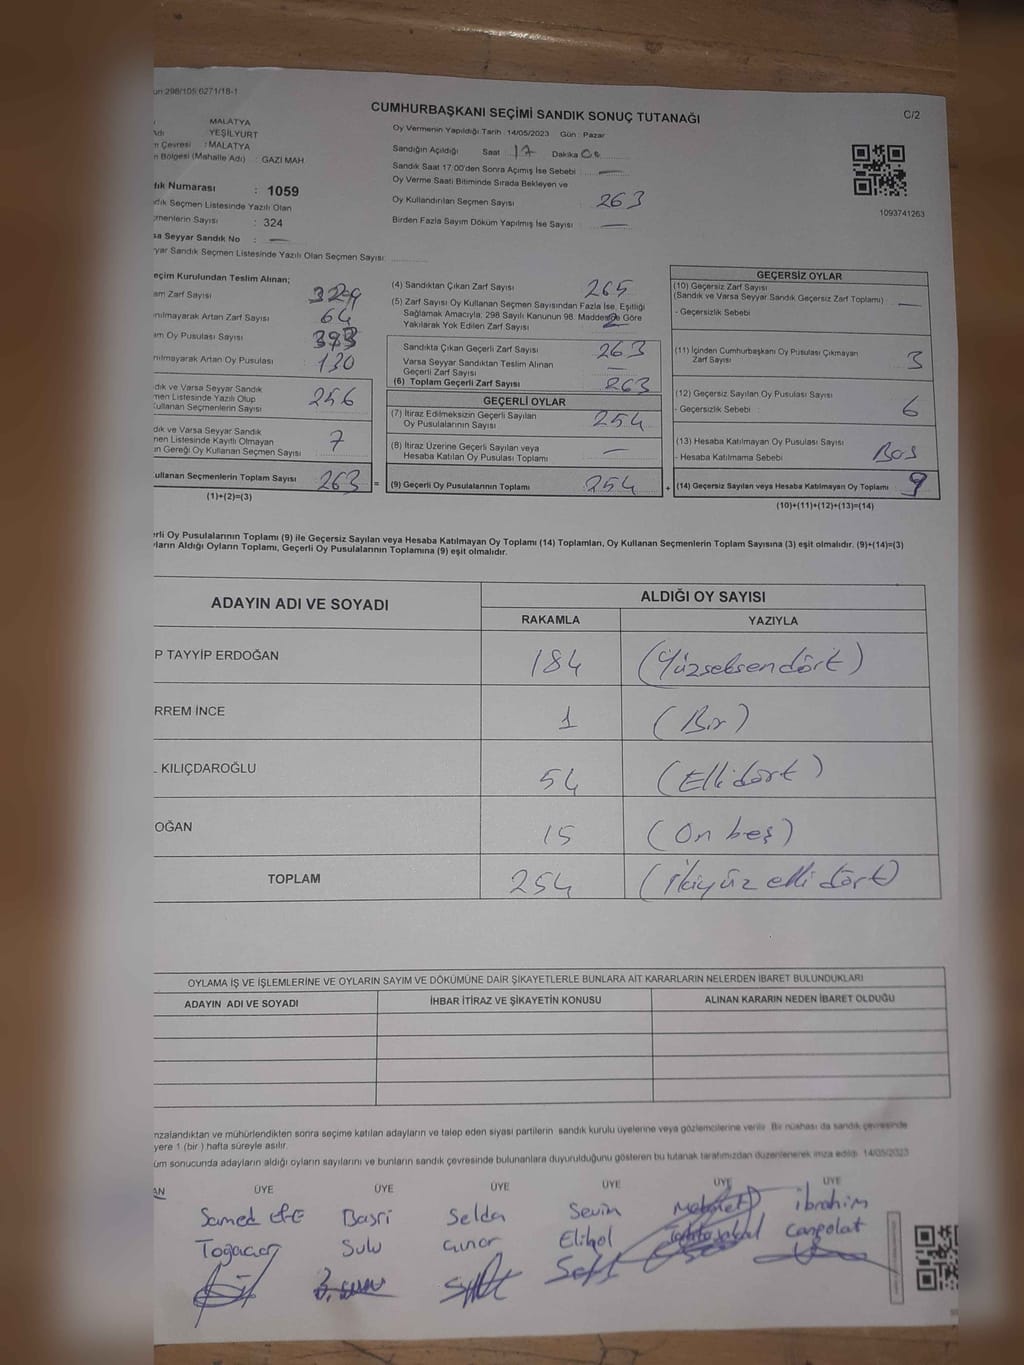 un:298/105:6271/18-1
CUMHURBAŞKANI SEÇİMİ SANDIK SONUÇ TUTANAĞI
C/2
MALATYA
YEŞİLYURT
n Çevresi : MALATYA
n Bölgesi (Mahalle Adı) : GAZI MAH.
Oy Vermenin Yapıldığı Tarih : 14/05/2023 Gün : Pazar
Sandığın Açıldığı Saat 17 Dakika 00
Sandık Saat 17:00'den Sonra Açılmış İse Sebebi —
Oy Verme Saati Bitiminde Sırada Bekleyen ve
Oy Kullandırılan Seçmen Sayısı : 263
Birden Fazla Sayım Döküm Yapılmış İse Sayısı : —
1093741263
dık Numarası : 1059
dık Seçmen Listesinde Yazılı Olan
çmenlerin Sayısı : 324
sa Seyyar Sandık No : —
yyar Sandık Seçmen Listesinde Yazılı Olan Seçmen Sayısı:
eçim Kurulundan Teslim Alınan;
am Zarf Sayısı
nılmayarak Artan Zarf Sayısı 64
am Oy Pusulası Sayısı
nılmayarak Artan Oy Pusulası 130
dık ve Varsa Seyyar Sandık
men Listesinde Yazılı Olup
Kullanan Seçmenlerin Sayısı 256
dık ve Varsa Seyyar Sandık
nen Listesinde Kayıtlı Olmayan
ın Gereği Oy Kullanan Seçmen Sayısı 7
ullanan Seçmenlerin Toplam Sayısı 263 =
(1)+(2)=(3)
(4) Sandıktan Çıkan Zarf Sayısı 265
(5) Zarf Sayısı Oy Kullanan Seçmen Sayısından Fazla İse, Eşitliği
Sağlamak Amacıyla; 298 Sayılı Kanunun 98. Maddesine Göre
Yakılarak Yok Edilen Zarf Sayısı 2
Sandıkta Çıkan Geçerli Zarf Sayısı 263
Varsa Seyyar Sandıktan Teslim Alınan
Geçerli Zarf Sayısı —
(6) Toplam Geçerli Zarf Sayısı 263
GEÇERLİ OYLAR
(7) İtiraz Edilmeksizin Geçerli Sayılan
Oy Pusulalarının Sayısı 254
(8) İtiraz Üzerine Geçerli Sayılan veya
Hesaba Katılan Oy Pusulası Toplamı —
(9) Geçerli Oy Pusulalarının Toplamı 254 +
GEÇERSİZ OYLAR
(10) Geçersiz Zarf Sayısı
(Sandık ve Varsa Seyyar Sandık Geçersiz Zarf Toplamı) —
- Geçersizlik Sebebi
(11) İçinden Cumhurbaşkanı Oy Pusulası Çıkmayan
Zarf Sayısı 3
(12) Geçersiz Sayılan Oy Pusulası Sayısı
- Geçersizlik Sebebi : 6
(13) Hesaba Katılmayan Oy Pusulası Sayısı
- Hesaba Katılmama Sebebi Boş
(14) Geçersiz Sayılan veya Hesaba Katılmayan Oy Toplamı 9
(10)+(11)+(12)+(13)=(14)
erli Oy Pusulalarının Toplamı (9) ile Geçersiz Sayılan veya Hesaba Katılmayan Oy Toplamı (14) Toplamları, Oy Kullanan Seçmenlerin Toplam Sayısına (3) eşit olmalıdır. (9)+(14)=(3)
yların Aldığı Oyların Toplamı, Geçerli Oy Pusulalarının Toplamına (9) eşit olmalıdır.
ADAYIN ADI VE SOYADI
ALDIĞI OY SAYISI
RAKAMLA YAZIYLA
P TAYYİP ERDOĞAN 184 (Yüzseksendört)
RREM İNCE 1 (Bir)
KILIÇDAROĞLU 54 (Ellidört)
OĞAN 15 (On beş)
TOPLAM 254 (İkiyüz elli dört)
OYLAMA İŞ VE İŞLEMLERİNE VE OYLARIN SAYIM VE DÖKÜMÜNE DAİR ŞİKAYETLERLE BUNLARA AİT KARARLARIN NELERDEN İBARET BULUNDUKLARI
ADAYIN ADI VE SOYADI İHBAR İTİRAZ VE ŞİKAYETİN KONUSU ALINAN KARARIN NEDEN İBARET OLDUĞU
mzalandıktan ve mühürlendikten sonra seçime katılan adayların ve talep eden siyasi partilerin sandık kurulu üyelerine veya gözlemcilerine verilir. Bir nüshası da sandık çevresinde
yere 1 (bir) hafta süreyle asılır.
üm sonucunda adayların aldığı oyların sayılarını ve bunların sandık çevresinde bulunanlara duyurulduğunu gösteren bu tutanak tarafımızdan düzenlenerek imza edildi. 14/05/2023
AN ÜYE ÜYE ÜYE ÜYE ÜYE ÜYE
Samed efe Basri Selda Sevin Mehmet ibrahim
Sulu Çınar Elibol Canpolat